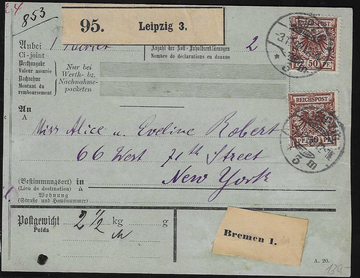 853
95. Leipzig 3.
Anbei
Ci-joint
Werthangabe
Valeur assurée
Nachnahme
Montant du
remboursement
Nur bei
Werth- bz.
Nachnahme-
packeten
Anzahl der Zoll-Inhaltserklärungen
Nombre de déclarations en douane
2
REICHSPOST
REICHSPOST
An
A
Miss Alice u. Eveline Robert
66 West 71th Street
New York
(Bestimmungsort) in
(Lieu de destination) à
Wohnung
(Strasse und Hausnummer)
Postgewicht
Poids
2 1/2 kg
Bremen 1.
A. 20.